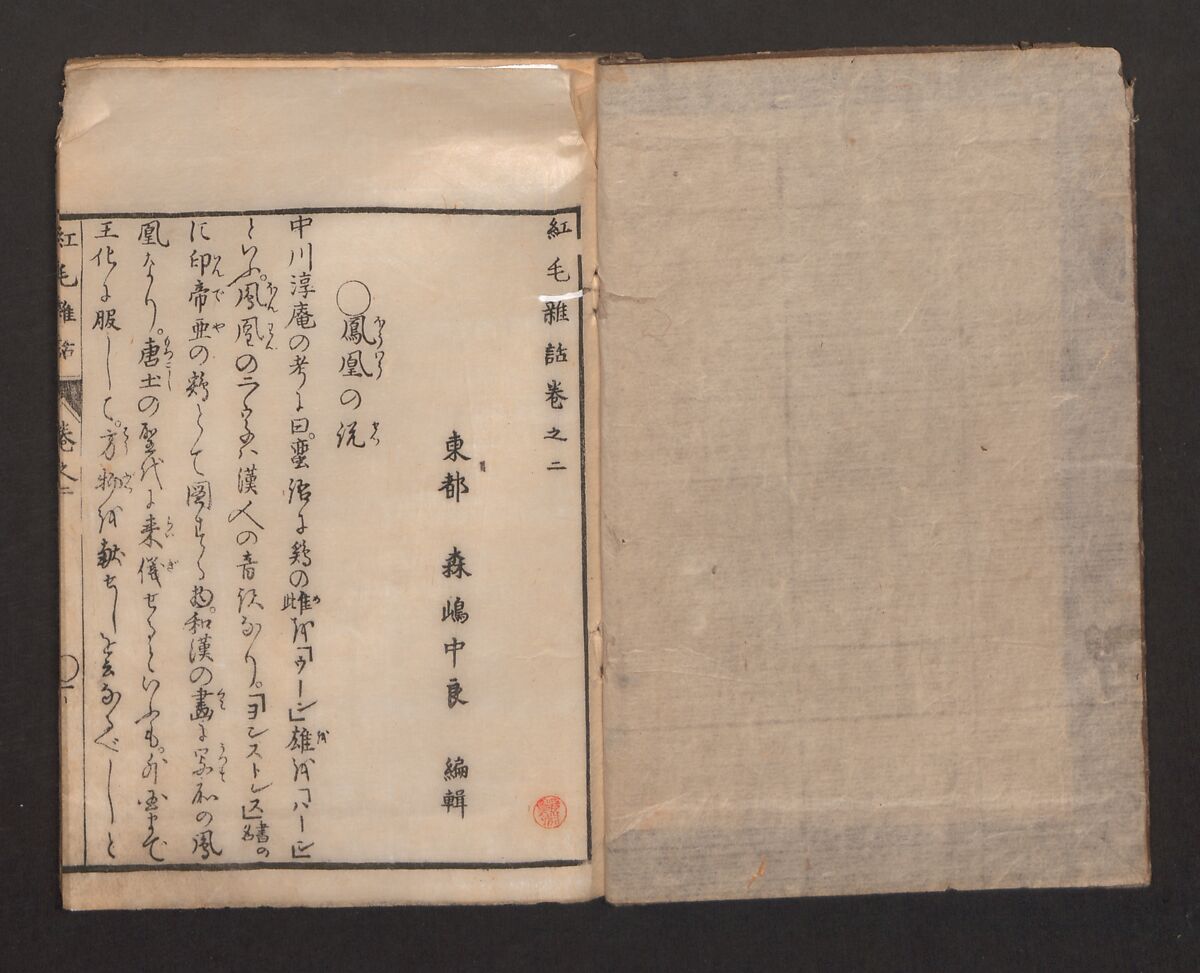 紅毛雜話卷之二
東都 森嶋中良 編輯
○鳳凰の説
中川淳庵の考に曰。蛮語に鶏の雌を「ウーン」雄を「ハーン」
といふ。鳳凰の二字は漢人の音訳なり。「ヨンストンス」書名の
に印帝亜の鶏とて図する物。和漢の畫に写所の鳳
凰なり。唐土の聖代に来儀せるといふも。外国まで
王化に服しして。方物を献せしを云なるべしと
紅毛雜話 卷之二